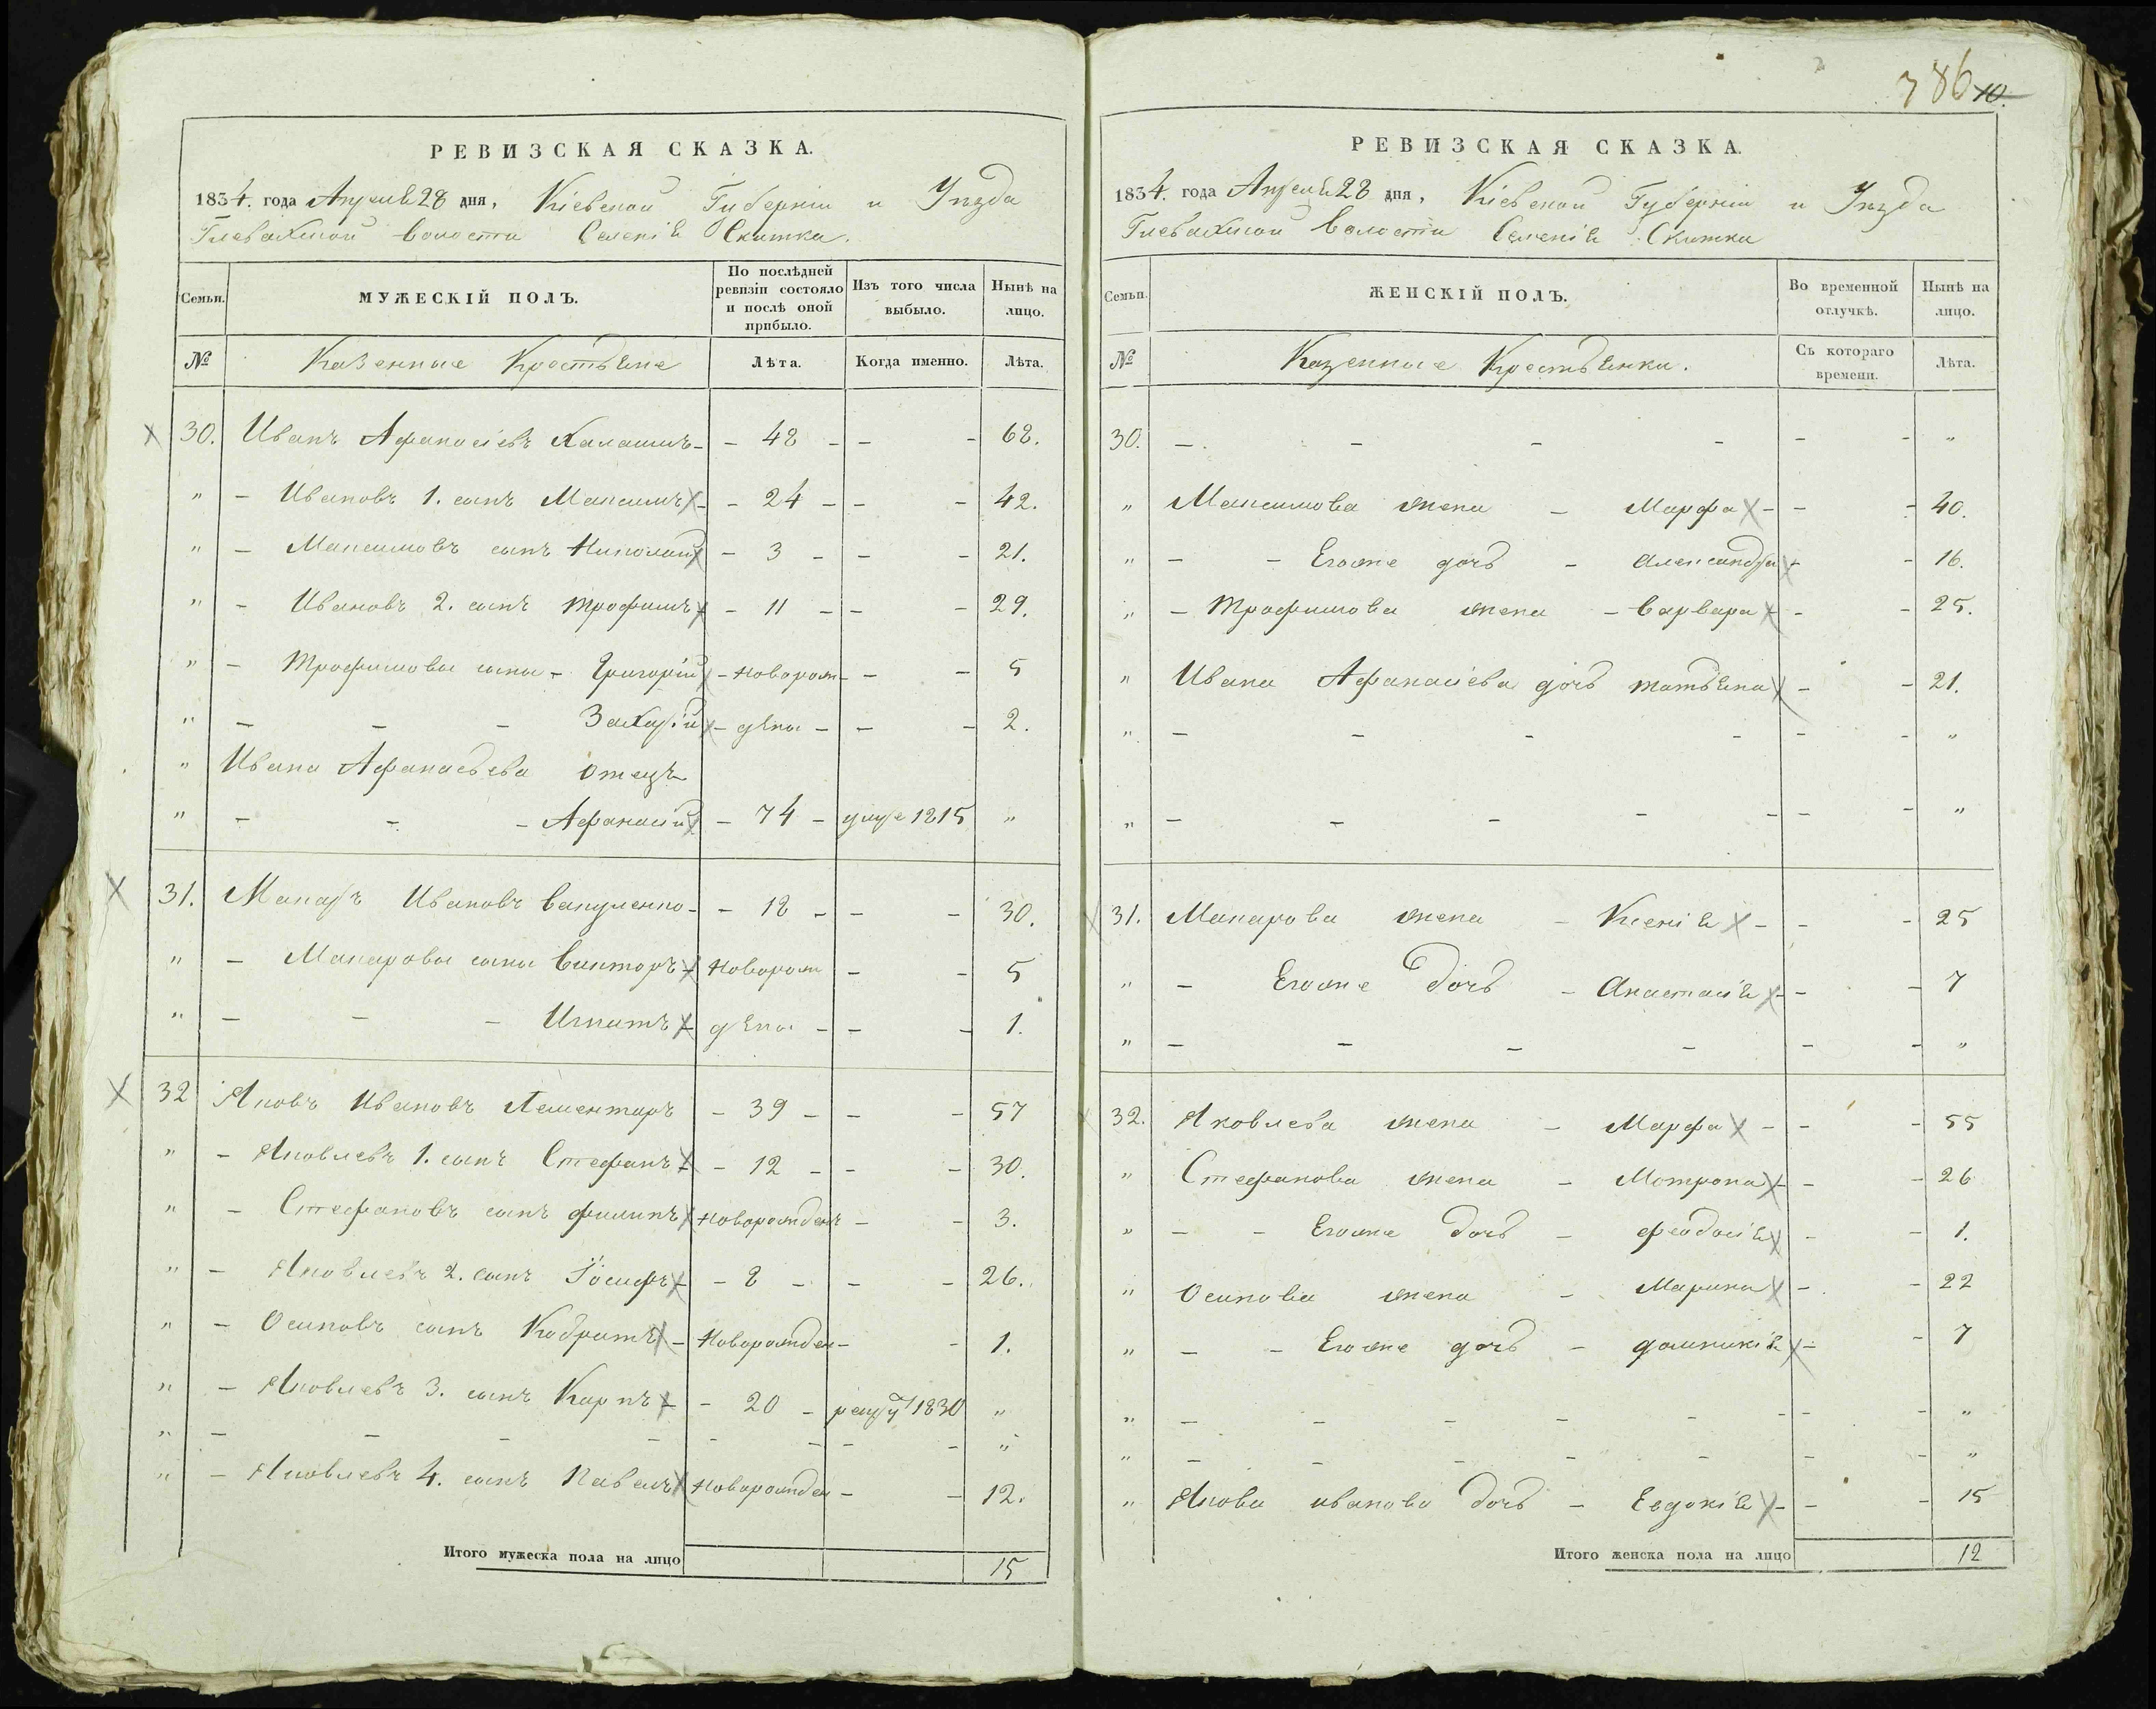 РЕВИЗСКАЯ СКАЗКА.
1834. года Апреля 28 дня, Кіевской Губерніи и Уѣзда
Глевахской волости Селенія Скитка.
Семьи. МУЖЕСКІЙ ПОЛЪ. По послѣдней ревизіи состояло и послѣ оной прибыло. Изъ того числа выбыло. Нынѣ на лицо.
№ Казенные Крестьяне Лѣта. Когда именно. Лѣта.
30. Иванъ Афанасіевъ - 48 - - - 62.
" - Ивановъ 1. сынъ Максимъ - 24 - - - 42.
" - Максимовъ сынъ Николай - 3 - - - 21.
" - Ивановъ 2. сынъ Трофимъ - 11 - - - 29.
" - Трофимовы сыны - Григорій - новорож - - - 5
" - - - Захарій - дѣны - - - 2.
" Ивана Афанасьева отецъ
" - - - Афанасій - 74 - умре 1815 "
31. Макаръ Ивановъ Вакуленко - - 12 - - - 30.
" - Макаровы сыны Викторъ - новорож - - 5
" - - - Игнатъ - дѣны - - - 1.
32 Яковъ Ивановъ Лементаръ - 39 - - - 57
" - Яковлевъ 1. сынъ Стефанъ - 12 - - - 30.
" - Стефановъ сынъ филипъ новорожден - - 3.
" - Яковлевъ 2. сынъ Іосифъ - 8 - - - 26.
" - Осиповъ сынъ Кодратъ - новорожден - - 1.
" - Яковлевъ 3. сынъ Карпъ - 20 - рекру 1830 "
" - - - - - - - - "
" - Яковлевъ 4. сынъ Павелъ новорожден - - 12.
Итого мужеска пола на лицо 15
786 10.
РЕВИЗСКАЯ СКАЗКА.
1834. года Апреля 28 дня, Кіевской Губерніи и Уѣзда
Глевахской Волости Селенія Скитка
Семьи. ЖЕНСКІЙ ПОЛЪ. Во временной отлучкѣ. Нынѣ на лицо.
№ Казенные Крестьянки. Съ котораго времени. Лѣта.
30. - - - - - - "
" Максимова жена - Марфа - - - 40.
" - - Егоже дочь - Александра - - 16.
" - Трофимова жена - Варвара - - 25.
" Ивана Афанасіева дочь татьяна - - 21.
" - - - - - - "
" - - - - - - - "
31. Макарова жена - Ксенія - - - 25
" - Егоже Дочь - Анастасія - - 7
" - - - - - - "
32. Яковлева жена - Марфа - - - 55
" Стефанова жена - Мотрона - - - 26
" - - Егоже Дочь - феодосія - - 1.
" Осипова жена - Марина - - 22
" - - Егоже дочь - домникія - - 7
" - - - - - - - - "
" - - - - - - - - "
" Якова иванова Дочь - Евдокія - - - 15
Итого женска пола на лицо 12